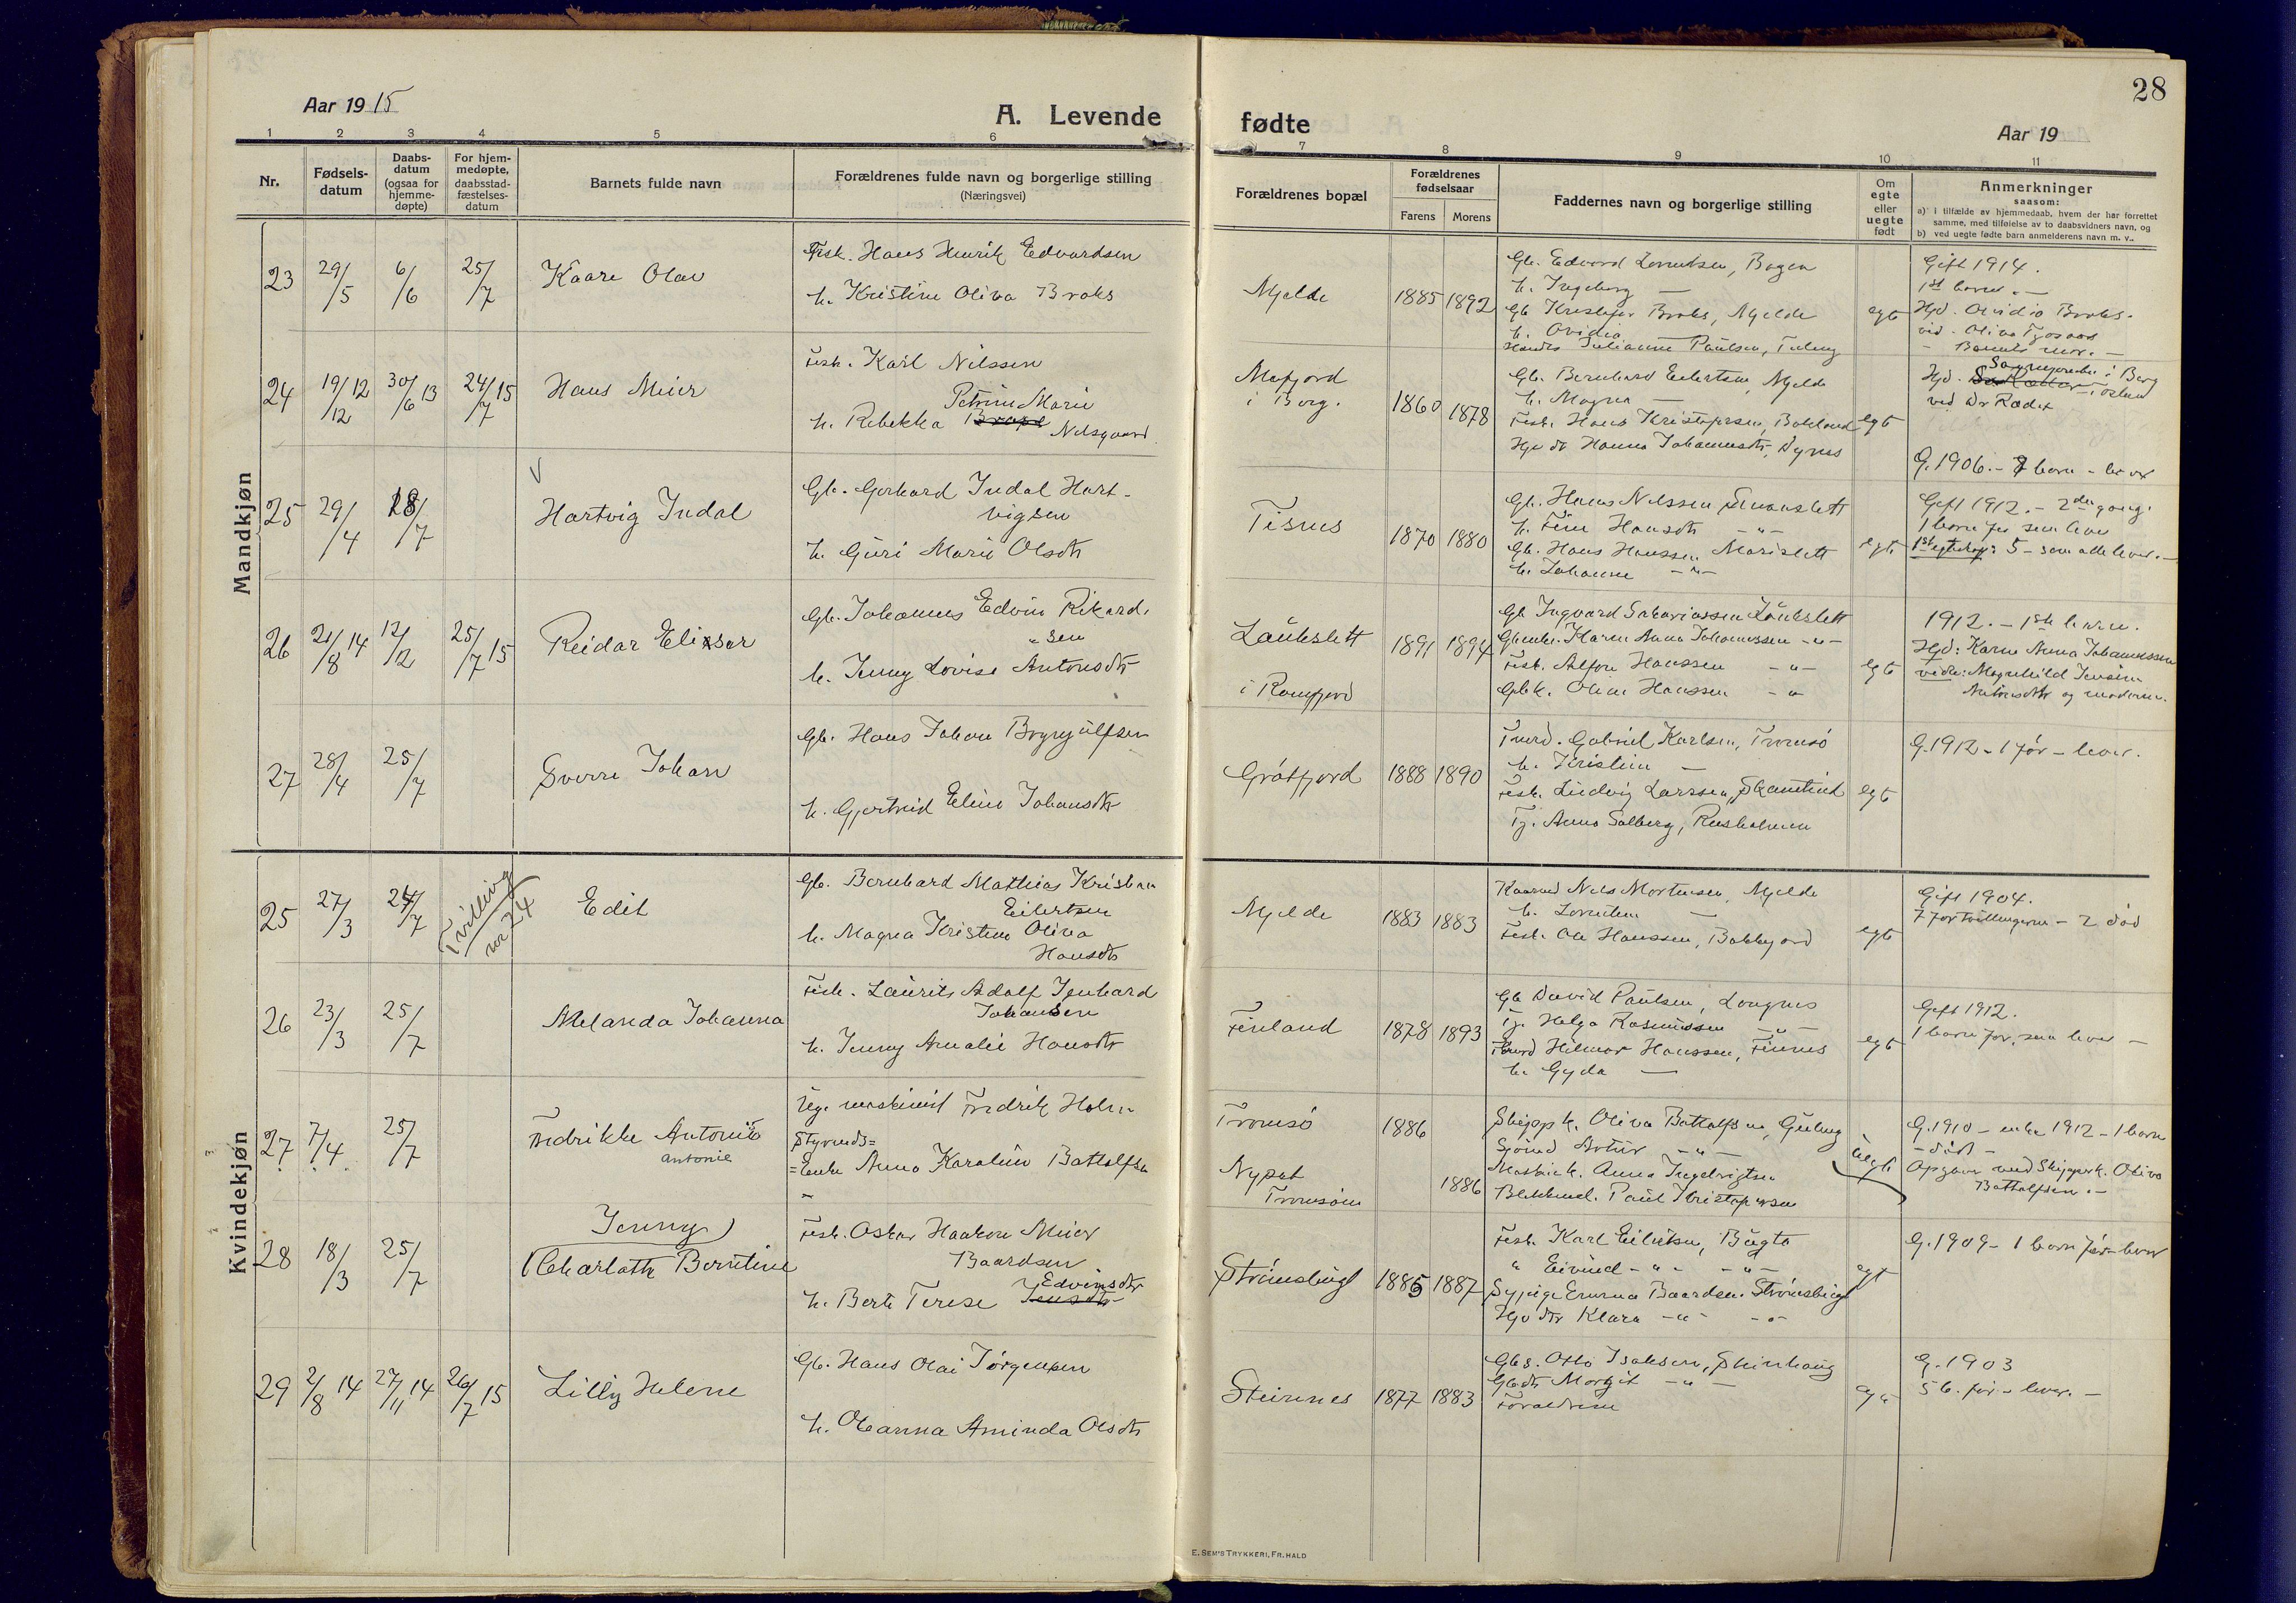 28
Aar 1915
A. Levende
fødte
Aar 19
1 2 3 4 5 6 7 8 9 10 11
Nr.
Fødsels-
datum
Daabs-
datum
(ogsaa for
hjemme-
døpte)
For hjem-
medøpte,
daabsstad-
fæstelses-
datum
Barnets fulde navn
Forældrenes fulde navn og borgerlige stilling
(Næringsvei)
Forældrenes bopæl
Forældrenes
fødselsaar
Farens Morens
Faddernes navn og borgerlige stilling
Om
egte
eller
uegte
født
Anmerkninger
saasom:
a) i tilfælde av hjemmedaab, hvem der har forrettet
samme, med tilføielse av to daabsvidners navn, og
b) ved uegte fødte barn anmelderens navn m. v..
Mandkjøn
23 29/5 6/6 25/7 Kaare Olav
Fisk. Hans Henrik Edvardsen
h. Kristine Oliva Broks
Mjelde 1885 1892
Gb. Edvard Lorentsen, Bogen
h. Ingeborg —
Gb. Kristofer Broks, Mjelde
h. Ovidia
Julianne Paulsen,
egt
Gift 1914.
1st barn. —
Hjd. Ovidia Broks.
vid. Oliva
Barnets mor. —
24 19/12 12 30/6 13 24/7 15 Hans Meier
Fisk. Karl Nilssen
Petrine Marie
h. Rebekka Nilsgaard
Mefjord
i Berg. 1860 1878
Gb. Bernhard Eilertsen, Mjelde
h. Magna —
Fisk. Hans Kristofersen,
Hanna Johannesdtr,
egt
Hjd. i Berg
ved
G. 1906. - 7 barn -
25 29/4 18/7 Hartvig Indal
Gb. Gerhard Indal Hart-
vigsen
h. Guri Marie Olsdtr
Tisnes 1870 1880
Gb. Hans Nilssen
h. Fine Hansdtr -"-
Gb. Hans Hanssen Marislett
h. Johanne -"-
egt.
Gift 1912. - 2den gang.
1 barn før som lever
1st egteskap: 5 - som alle lever. —
26 21/8 14 12/12 25/7 15 Reidar Elisar
Gb. Johannes Edvin Rikard-
sen
h. Jenny Lovise Antonsdtr
Laukslett
i Ramfjord 1891 1894
Gb Ingvard Sakariassen Laukslett
Karen Anna Johannessen -"-
Fisk. Alfon Hanssen -"-
Gbk. Hanssen -"
egt
1912. - 1ste barn.
Hjd: Karen Anna Johannessen
vidn: Magnhild Jensine
Antonsdtr og moderen.
27 28/4 25/7 Sverre Johan
Gb. Hans Johan Brynjulfsen
h. Gjertrud Eline Johansdtr
Gråtfjord 1888 1890
Gabriel Karlsen, Tromsö
h. Kristine —
Fisk. Ludvig Larssen,
Tj. Anna Solberg,
egt
G. 1912 - 1 før - lever.
Kvindekjøn
25 27/3 24/7 Tvilling
nr 24 Edit
Gb. Bernhard Mathias Kristian
Eilertsen
h. Magna Kristine Oliva
Hansdtr
Mjelde 1883 1883
Nils Mortensen, Mjelde
h. Lorentine —
Fisk. Ole Hanssen,
egt
Gift 1904.
7 før tvillingerne - 2 død
26 23/3 25/7 Melanda Johanna
Fisk. Laurits Adolf Jenhard
Johansen
h. Jenny Amalie Hansdtr
Finland 1878 1893
Gb David Paulsen, Langnes
Tj. Helga Rasmussen -"-
Hilmar Hanssen, Finnes
h. Gyda —
egt
Gift 1912.
1 barn før, som lever —
27 7/4 25/7 Fredrikke Antonie
Antonie
Ug. maskinist Fredrik Holm
Styrmds=
=Enke Anna Karoline Battolfsen
Tromsö 1886
Tromsöen 1886
Skippk. Oliva Battolfsen,
Sjömd Artur -"-
Maskin k. Anna Ingebrigtsen
Blikkensl. Paul Kristofersen
uegte
G. 1910 - enke 1912 - 1 barn
- död -
Opgave ved Skipperk. Oliva
Battolfsen. —
28 18/3 25/7 Jenny
Charlotte Berntine
Fisk. Oskar Haakon Meier
Baardsen
h. Berte Terese Jensdtr Edvinsdtr
Strömsbugt 1885 1887
Fisk. Karl Eilertsen, Bugta
" Eivind -"- -"-
Sypige Emma Baardsen. Strömsbugt
Klara -"- -"-
egt
G. 1909 - 1 barn før - lever
29 2/8 14 27/11 14 26/7 15 Lilly Helene
Gb. Hans Olai Jörgensen
h. Olanna Aminda Olsdtr
Steinnes 1877 1883
Gbs. Otto Isaksen,
Gbdtr Margit -"-
Forældrene
G. 1903
5 b. før - lever. —
E. SEM'S TRYKKERI, FR. HALD